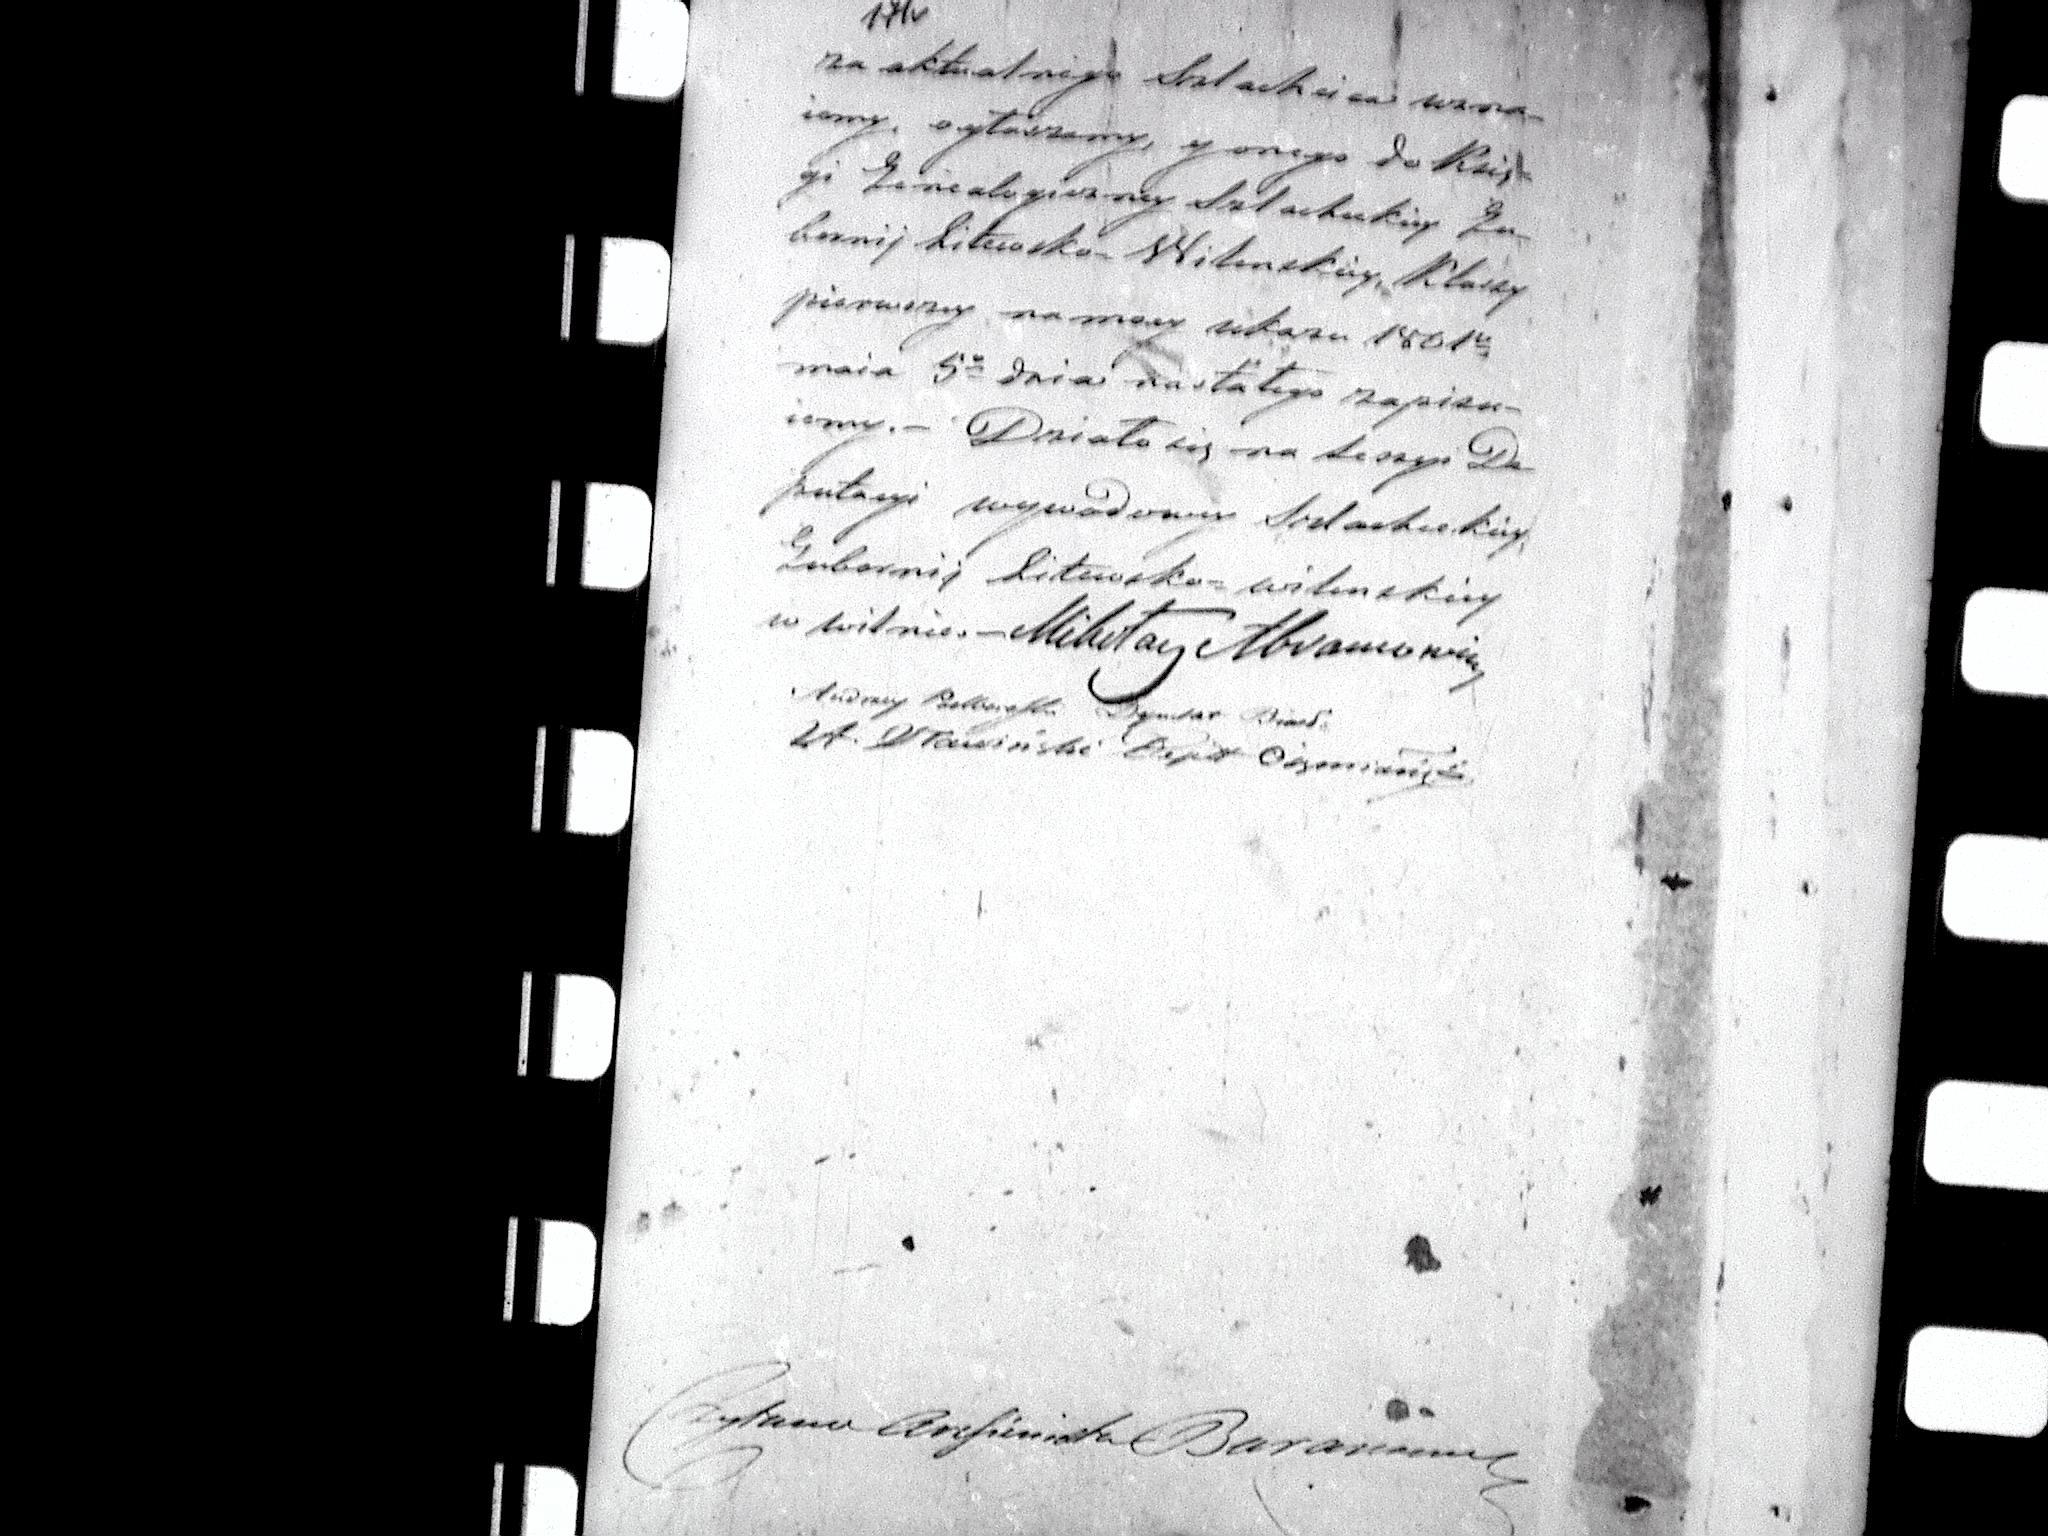 171v
za aktualnego Szlachcica uzna-
iemy, ogłaszamy, y onego do Księ-
gi Genealogiczney Szlacheckiey Gu-
bernij Litewsko-Wileńskiey, Klassy
pierwszey na mocy ukazu 1801º
maia 5º dnia nastałego zapisu-
iemy.- Działo się na Sessyi De
putacyi wywodowey Szlacheckiey
Gubernij Litewsko-wileńskiey
w wilnie.- Mikołay Abramowicz
Andrzey
Deptt Oszmiański
Czytano Baranowicz